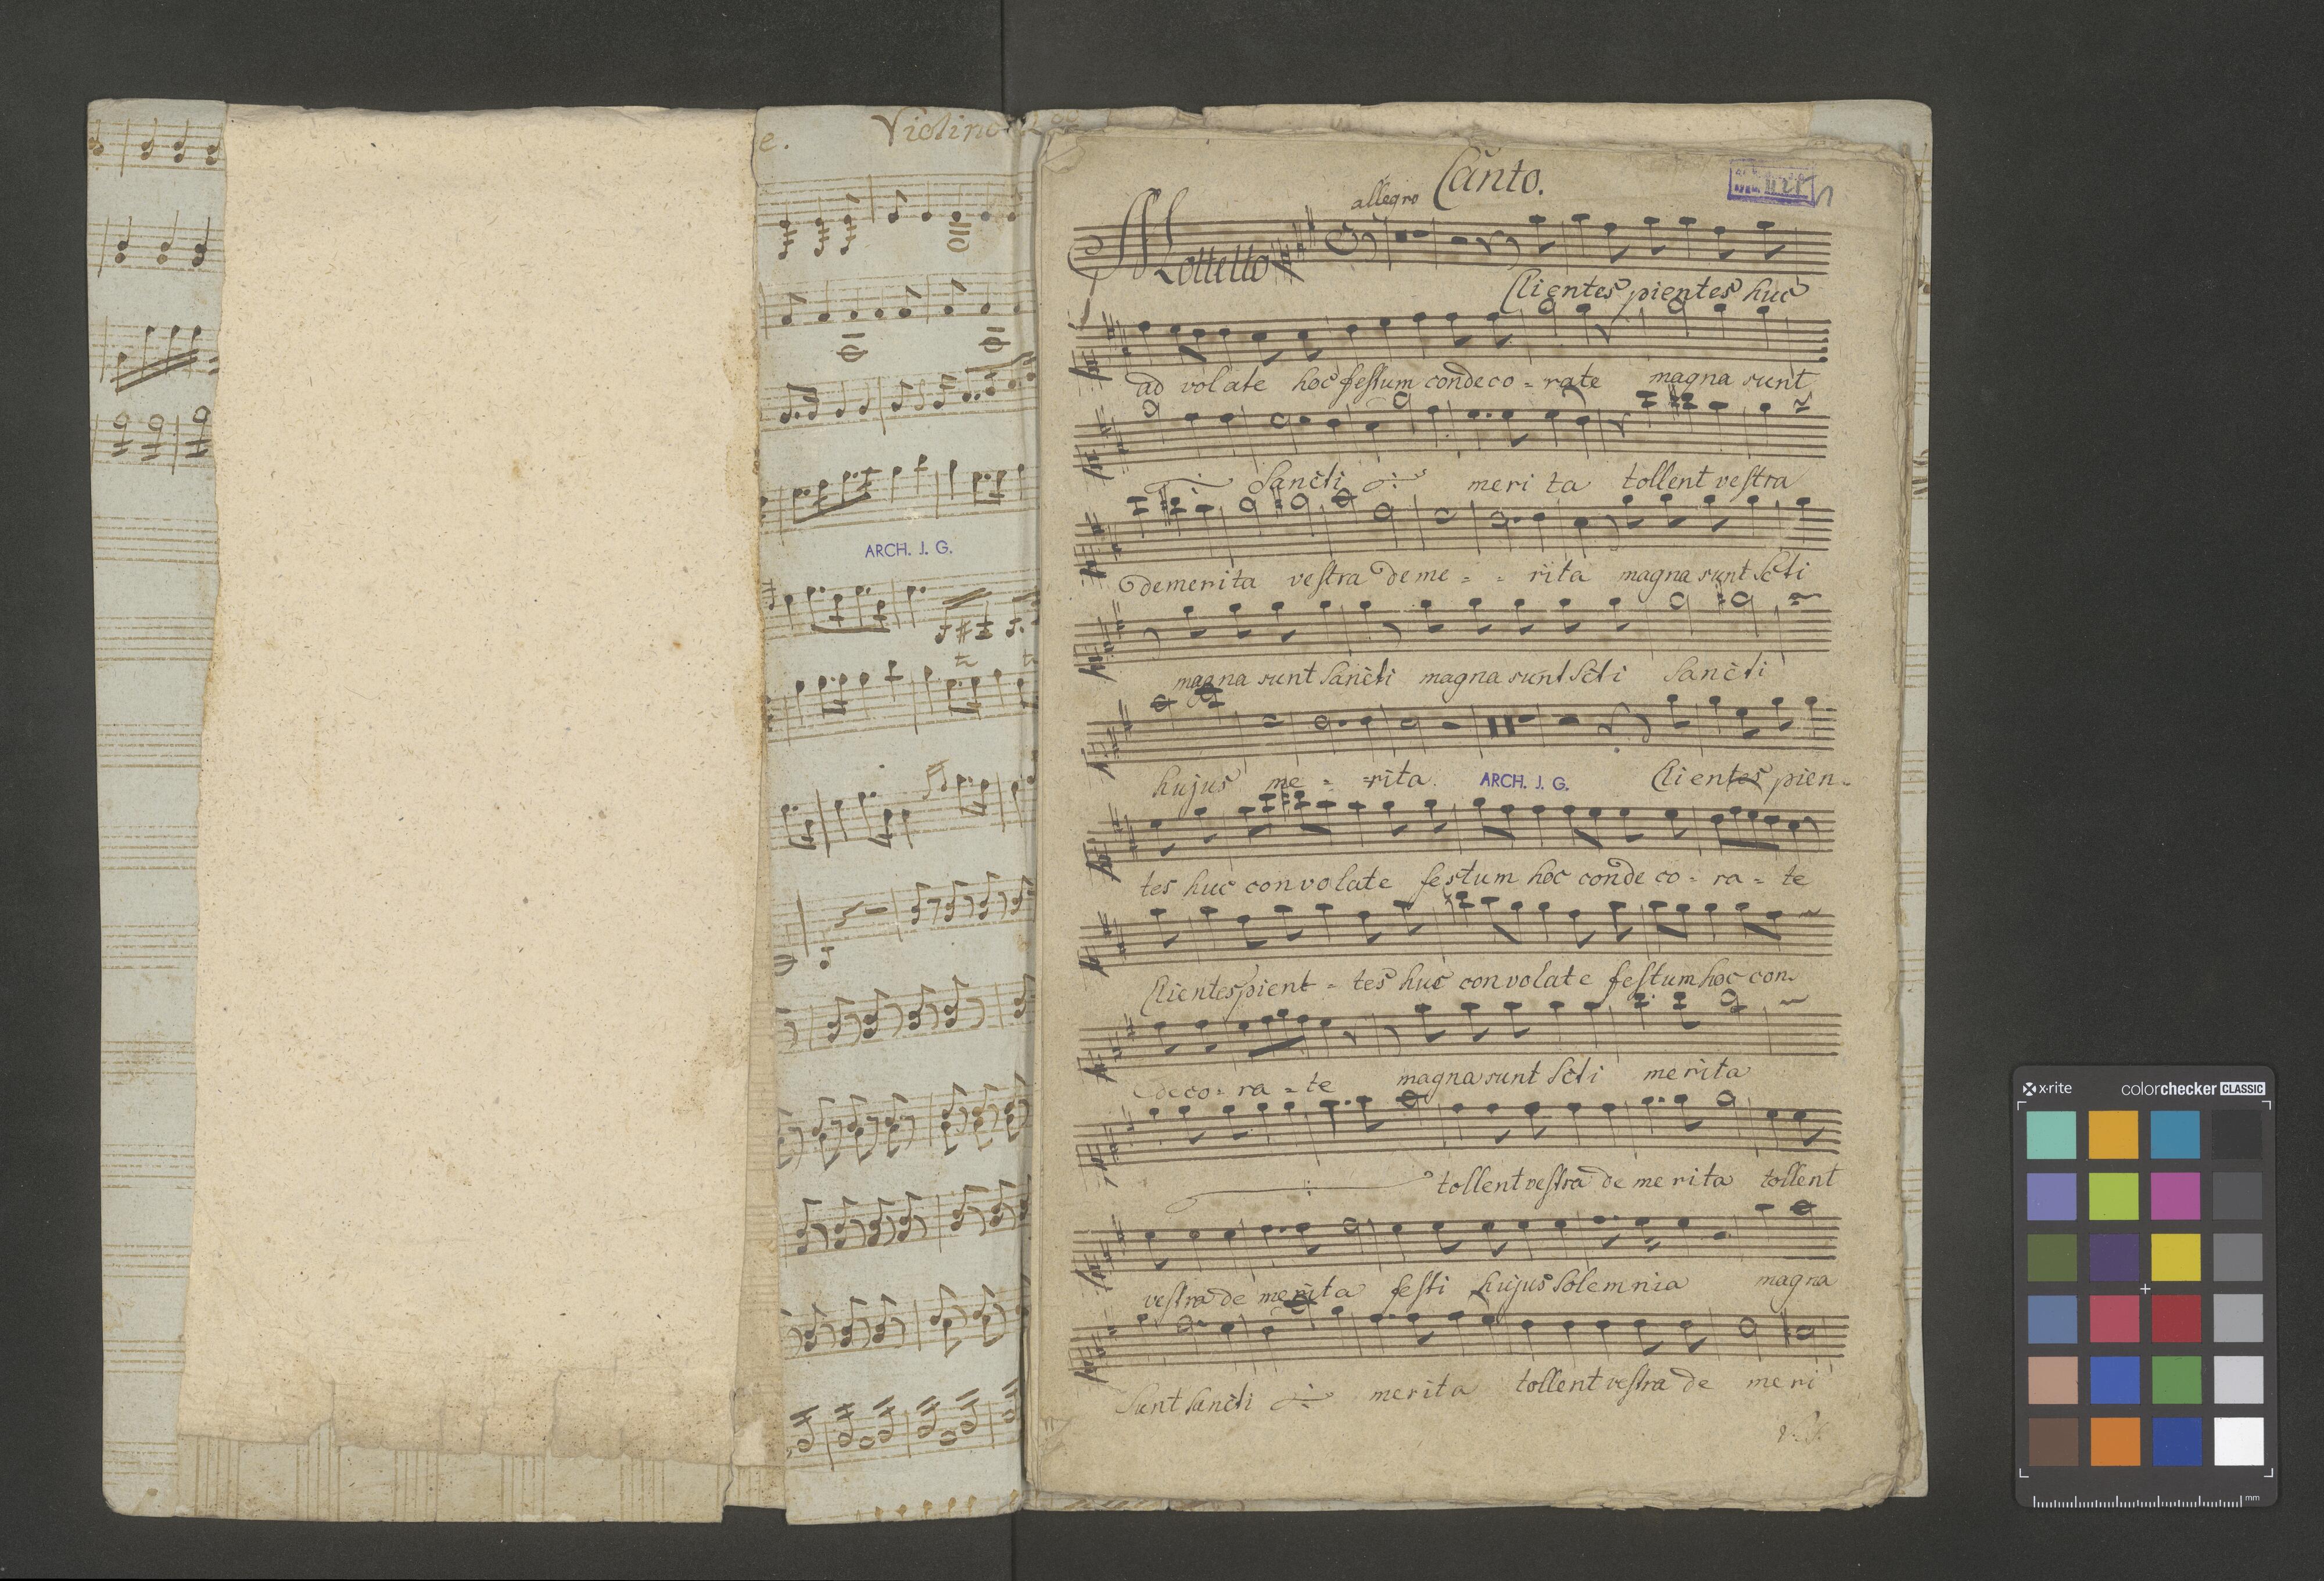 e. Violino
ARCH. J. G.
Canto.
allegro
Mottetto
Clientes pientes huc
ad volate hoc festum condeco = rate magna sunt
Sancti merita tollent vestra
demerita vestra deme = = rita magna sunt Scti
magna sunt Sancti magna sunt Scti Sancti
hujus me = =rita. ARCH. J. G. Clientes pien-
tes huc convolate festum hoc condeco = ra = te
Clientes pient = tes huc convolate festum hoc con-
deco = ra = te magna sunt Scti merita
tollent vestra de merita tollent
vestra de merita festi hujus Solemnia magna
Sunt Sancti merita tollent vestra de meri
x·rite colorchecker CLASSIC
mm